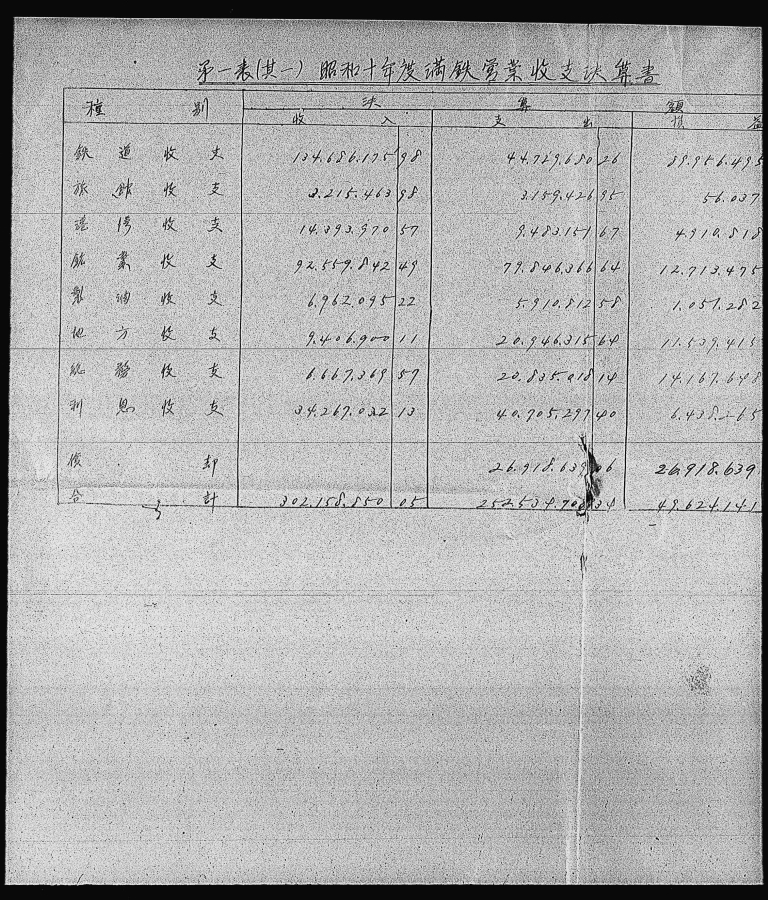 第一表(其一) 昭和十年度満鉄営業收支決算書
種別 決算額
收入 支出 損益
鉄道收支 134.686.175 98 44.729.680 26 89.956.495
旅館收支 3.215.463 98 3.159.426 95 56.037
港湾收支 14.393.970 57 9.483.151 67 4.910.818
鉱業收支 92.559.842 49 79.846.366 64 12.713.475
製油收支 6.962.095 22 5.910.812 58 1.051.282
地方收支 9.406.900 11 20.946.315 64 11.539.415
総務收支 6.667.369 57 20.835.018 14 14.167.648
利息收支 34.267.032 13 40.705.297 40 6.438.265
償却 26.918.639 06 26.918.639
合計 302.158.850 05 252.534.708 34 49.624.141